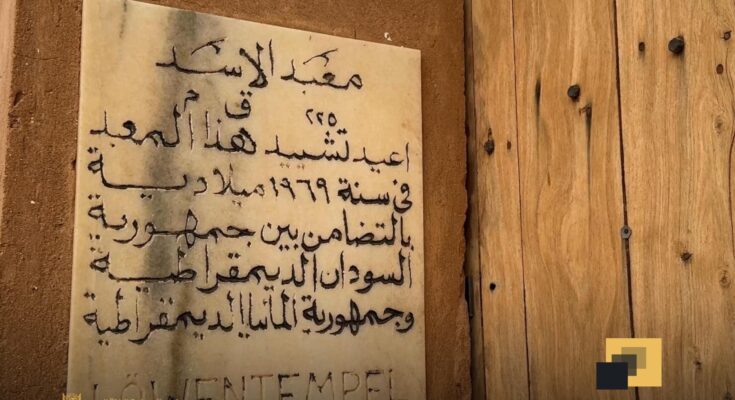 معبد الاسد
٢٢٥ ق م
اعيد تشييد هذا المعبد
في سنة ١٩٦٩ ميلادية
بالتضامن بين جمهورية
السودان الديمقراطية
وجمهورية المانيا الديمقراطية
LÖWENTEMPEL